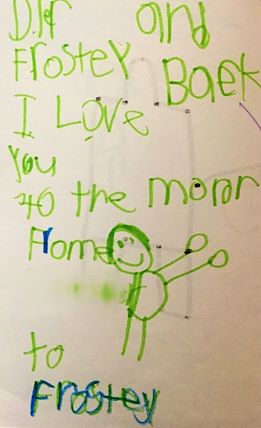 D.er and
Frostey Back
I Love
you
to the moron
Frome
to
Frostey